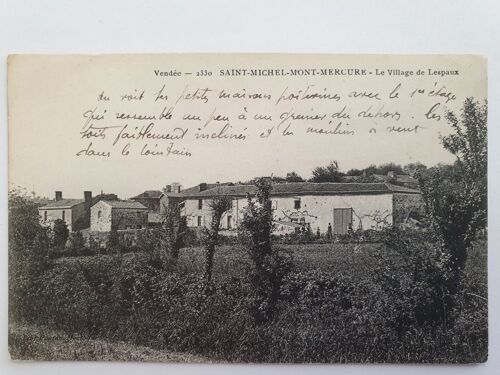 Vendée — 2330 SAINT-MICHEL-MONT-MERCURE - Le Village de Lespaux
on voit les petits maisons poitevines avec le 1er étage
qui ressemble un peu à un grenier du dehors. les
toits faiblement inclinés et les moulins à vent
dans le lointain